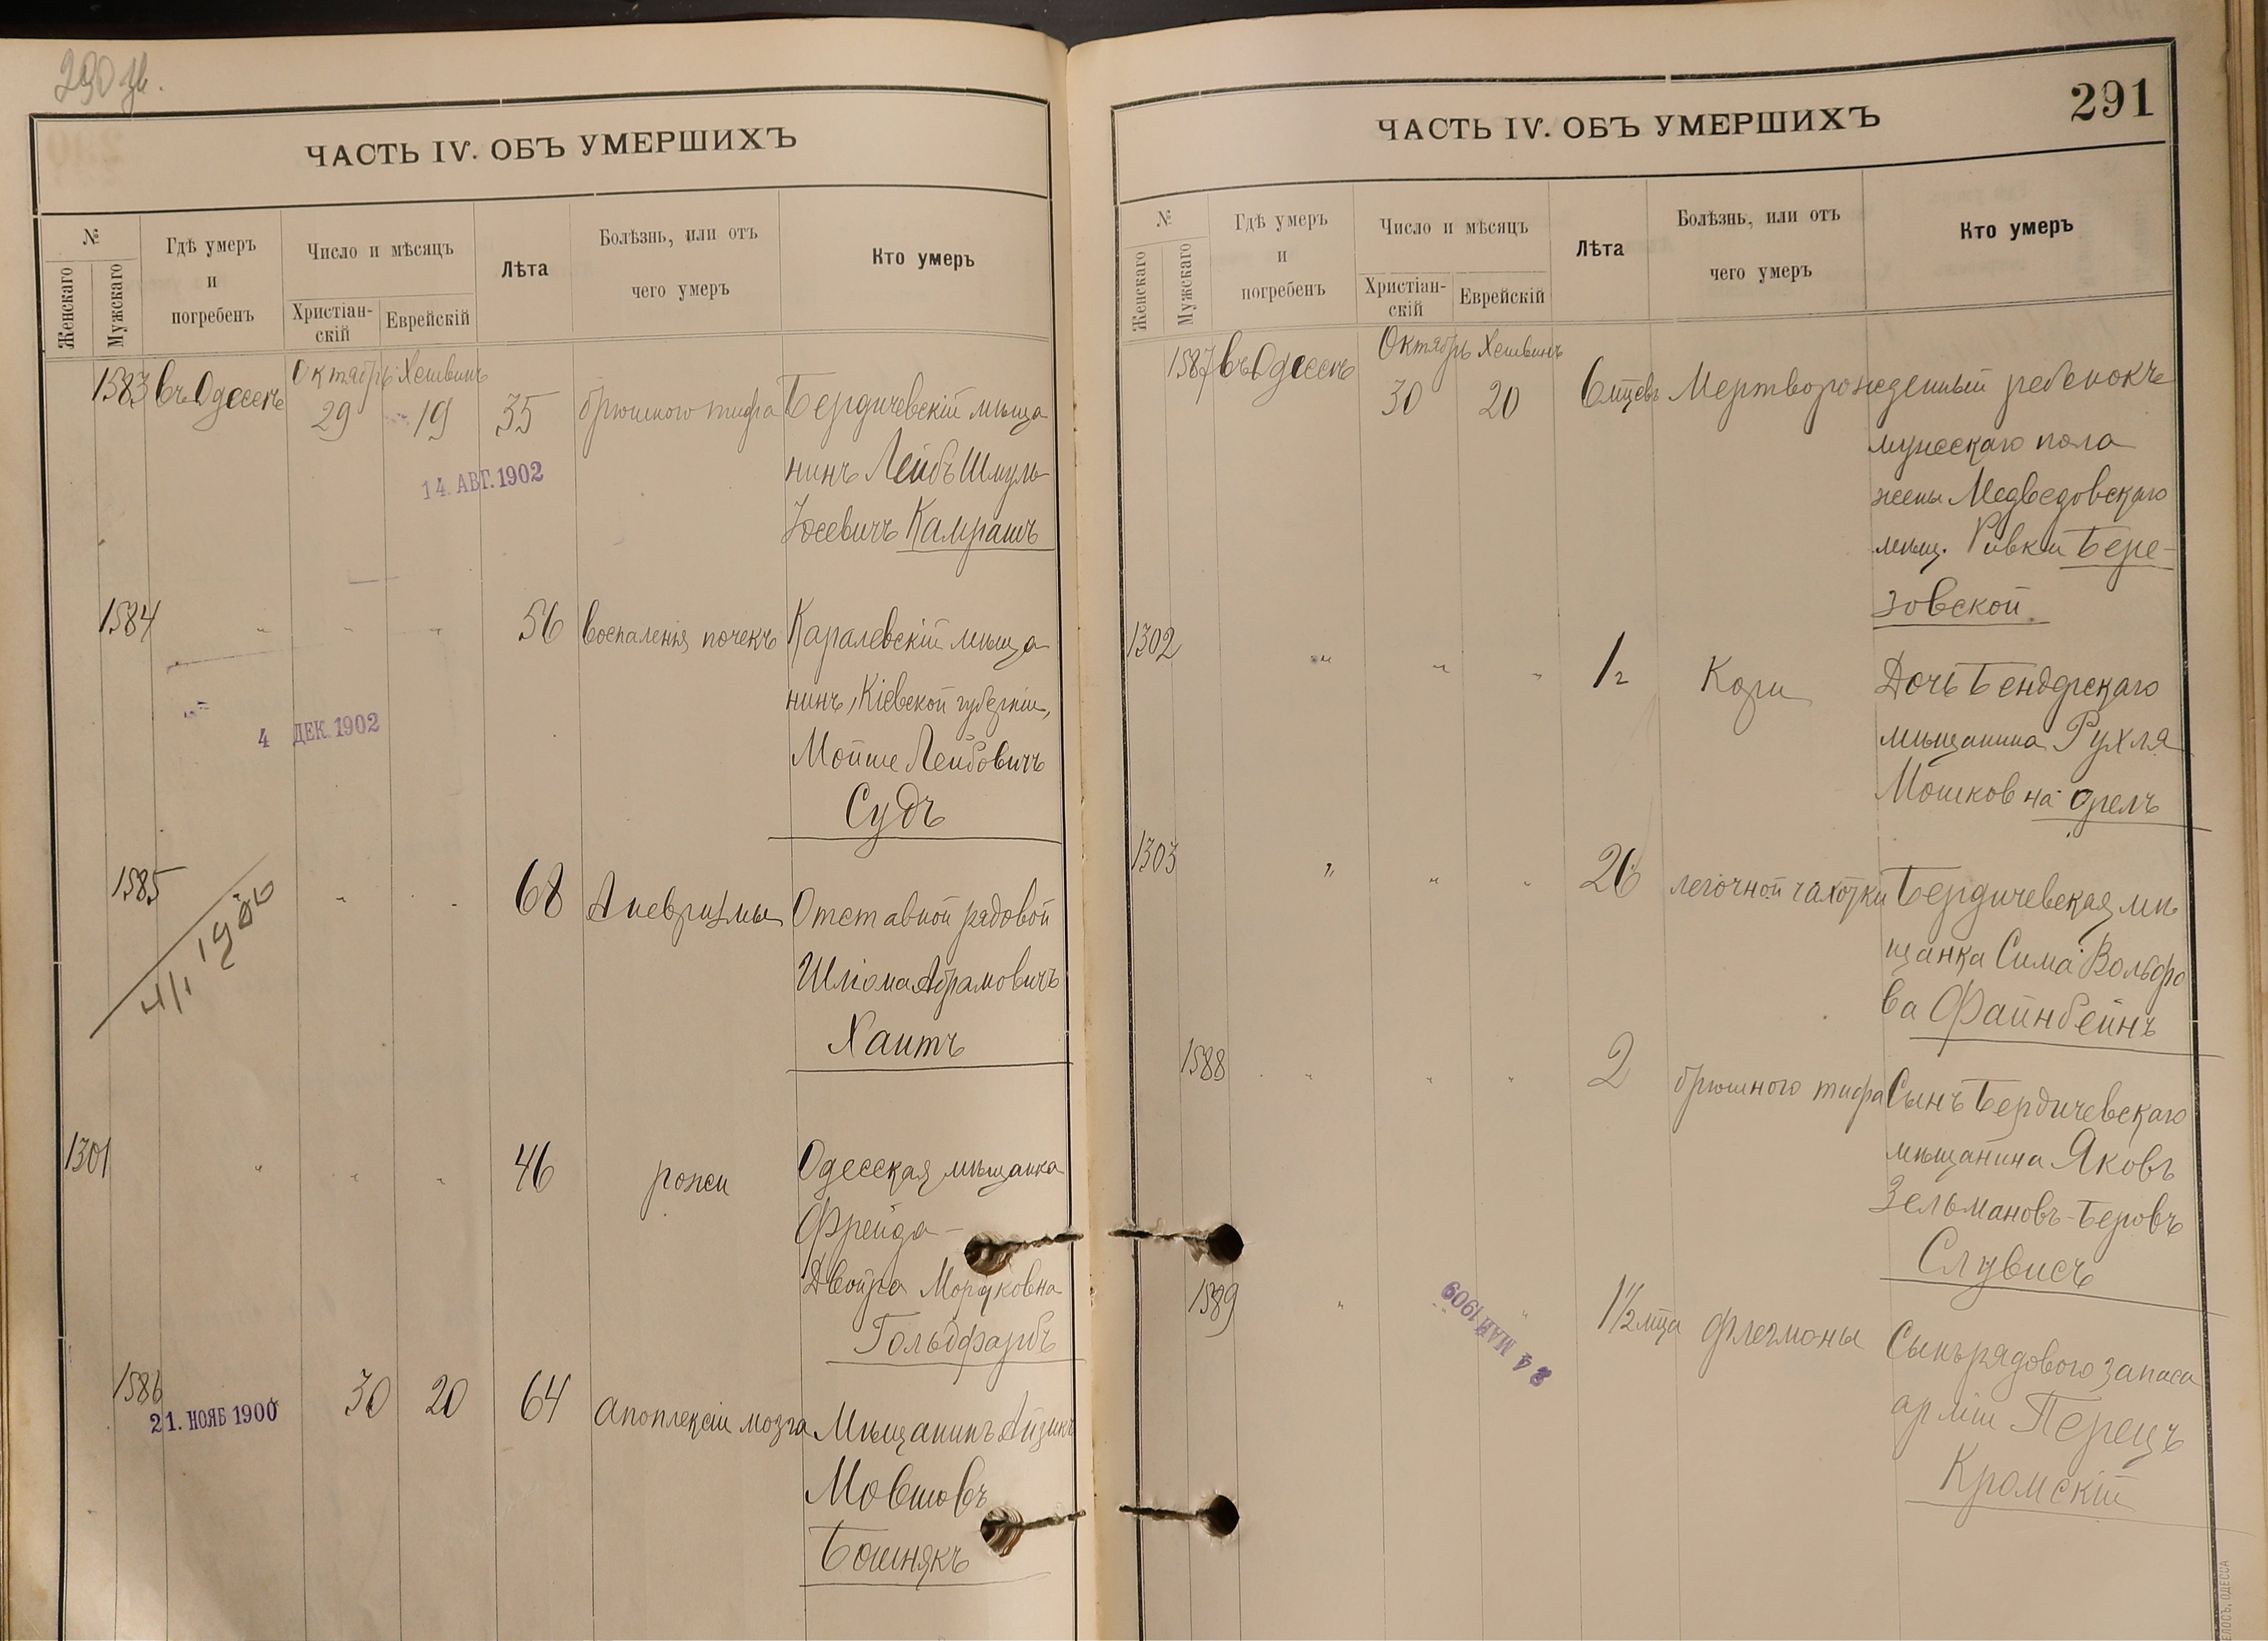 290 
ЧАСТЬ IV. ОБЪ УМЕРШИХЪ
№
Женскаго
Мужскаго
Гдѣ умеръ
и
погребенъ
Число и мѣсяцъ
Христіан-
скій
Еврейскій
Лѣта
Болѣзнь, или отъ
чего умеръ
Кто умеръ
Октябрь Хешвинъ
1583 въ Одессѣ 29 19 35 брюшного тифа Бердичевскій мѣща
нинъ Лейбъ Шмуль
14. АВГ. 1902
Іосевичъ Камрашъ
1584 " " " 56 Воспаленія почекъ Каралевскій мѣща
нинъ, Кіевской губерніи,
4 ДЕК. 1902
Мойше Лейбовичъ
Судъ
1585 " " 68 Аневризмы Отставной рядовой
4/1 1900
Шліома Абрамовичъ
Хаитъ
1301 " " " 46 рожи Одесская мѣщанка
Фрейда-
Двойра Мордковна
Гольдфарбъ
1586 30 20 64 апоплексіи мозга Мѣщанинъ Айзикъ
21. НОЯБ 1900
Мовшовъ
Бошнякъ
291
ЧАСТЬ IV. ОБЪ УМЕРШИХЪ
№
Женскаго
Мужскаго
Гдѣ умеръ
и
погребенъ
Число и мѣсяцъ
Христіан-
скій
Еврейскій
Лѣта
Болѣзнь, или отъ
чего умеръ
Кто умеръ
Октябрь Хешвинъ
1587 въ Одессѣ 30 20 6 мцевъ Мертворожденный ребенокъ
мужескаго пола
жены Медведовскаго
мѣщ. Ривки Бере-
зовской
1302 " " " 1/2 Кори Дочь Бендерскаго
мѣщанина Рухля
Мошковна Орелъ
1303 " " " 26 легочной чахотки Бердичевская мѣ
щанка Сима Вольфо
ва Файнбейнъ
1588 " " " 2 брюшного тифа Сынъ Бердичевскаго
мѣщанина Яковъ
Зельмановъ-Беровъ
Слувисъ
1589 " " 1½ мца флегмоны Сынъ рядового запаса
24 МАЯ 1909
арміи Перецъ
Кромскій